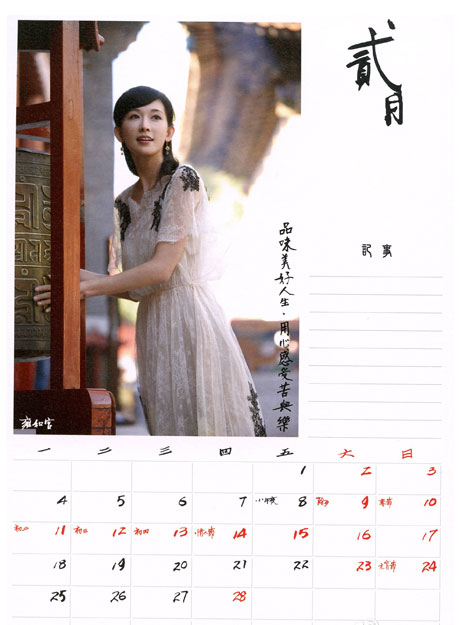 貳月
記事
品味美好人生．用心感受苦與樂
雍和宮
一 二 三 四 五 六 日
1 2 3
4 5 6 7 小年夜 8 除夕 9 春節 10
初二 11 初三 12 初四 13 情人節 14 15 16 17
18 19 20 21 22 23 元宵節 24
25 26 27 28